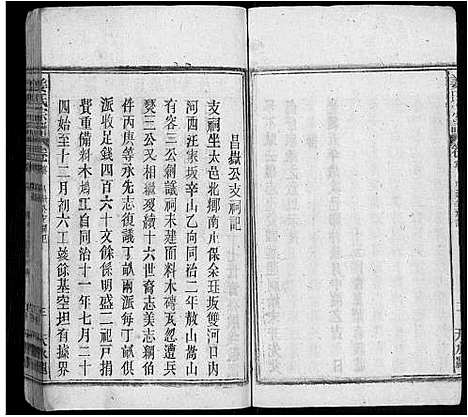 昌嶽公支祠記
支祠坐太邑北鄉南止保余珏坂雙河口內
河西汪家坂辛山乙向同治二年赦蒿山
有容三公創議祠未建而料木磚瓦忽遭兵
燹三公又相繼裂續十六世裔志美志綱伯
件丙庚等承先志復議丁畝兩派每丁畝捐
派谷四百六十文餘係明盛二祀戶捐
費重備料木鳩工自同治十一年七月二十
四始至十二月初六工竣餘基空坦有據界
姜氏宗譜